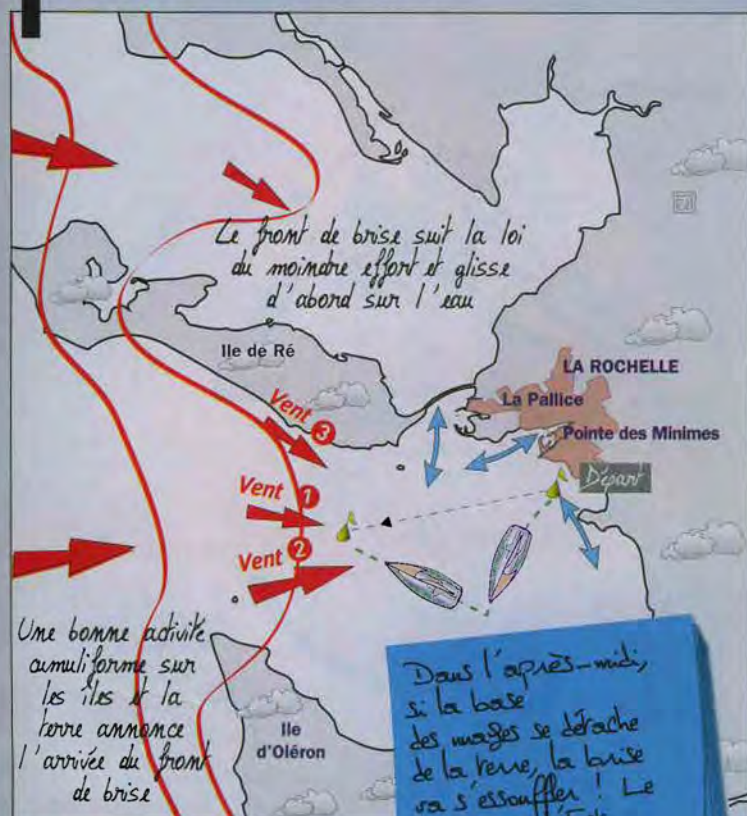 Le front de brise suit la loi
du moindre effort et glisse
d'abord sur l'eau
Ile de Ré
LA ROCHELLE
La Pallice
Pointe des Minimes
Départ
Vent 3
Vent 1
Vent 2
Une bonne activité
cumuliforme sur
les îles et la
terre annonce
l'arrivée du front
de brise
Ile
d'Oléron
Dans l'après-midi,
si la base
des nuages se détache
de la terre, la brise
va s'essouffler ! Le